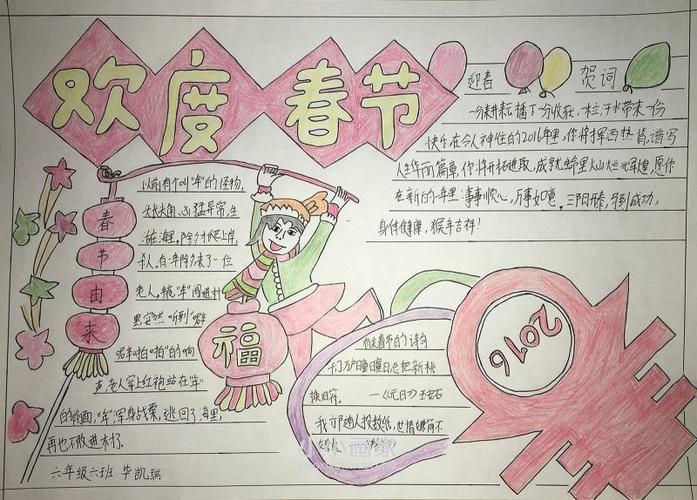 欢度春节
迎春 贺词
一分耕耘播下一分收获,一粒汗水带来一份
快乐,在令人神往的2016年里,你将挥洒热情,谱写
人生华丽篇章,你将开拓进取,成就
在新的一年里:事事顺心,万事如意,三阳开泰,马到成功,
身体健康,猴年吉祥!
春节由来
以前有个叫"年"的怪物,
头长触角,凶猛异常,生
活在海里,除夕才爬上岸,
杀人,有一年除夕来了一位
老人,
里,突然"听到"
"啪啪"的响
声,老人穿上红袍站在"年"
的前面,"年"浑身战栗,逃回了海里,
再也不敢进村了。
福
六年级六班 毕凯瑞
2016
有关春节的诗句
千门万户曈曈日,总把新桃
换旧符。
——《元日》王安石
我亦随人投数纸,世情嫌简不